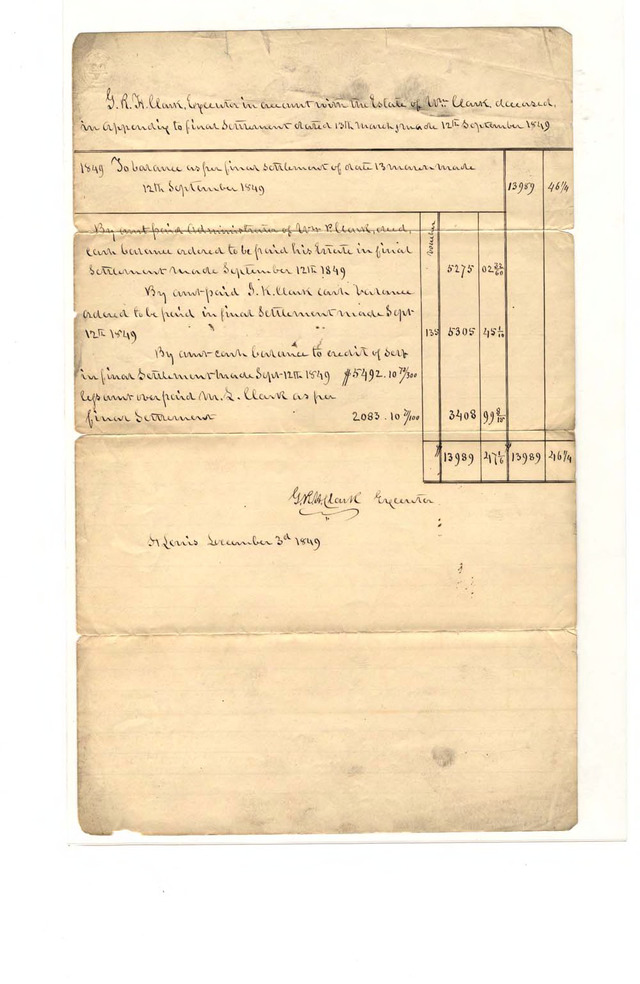 G. R. H. Clark, Executor in account with the Estate of Wm Clark, deceased,
in appendix to final Settlement dated 13th March, made 12th September 1849
1849 To balance as per final Settlement of date 13 March made
12th September 1849 13989 46 1/4
By amt paid Administrator of Wm P. Clark, decd, voucher
cash balance ordered to be paid his Estate in final
Settlement made September 12th 1849 5275 02 32/60
By amt paid J. K. Clark cash balance
ordered to be paid in final Settlement made Sept
12th 1849 135 5305 45 1/10
By amt cash balance to credit of self
in final Settlement made Sept 12th 1849 $5492.10 72/300
less amt overpaid M. L. Clark as per
final Settlement 2083.10 2/100 3408 99 8/10
$ 13989 47 1/6 $ 13989 46 1/4
G R H Clark Executor
St Louis December 3d 1849